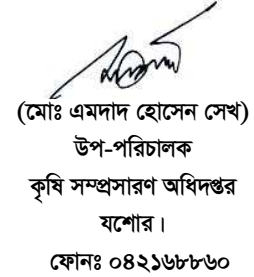 (মোঃ এমদাদ হোসেন সেখ)
উপ-পরিচালক
কৃষি সম্প্রসারণ অধিদপ্তর
যশোর।
ফোনঃ ০৪২১৬৮৮৬০